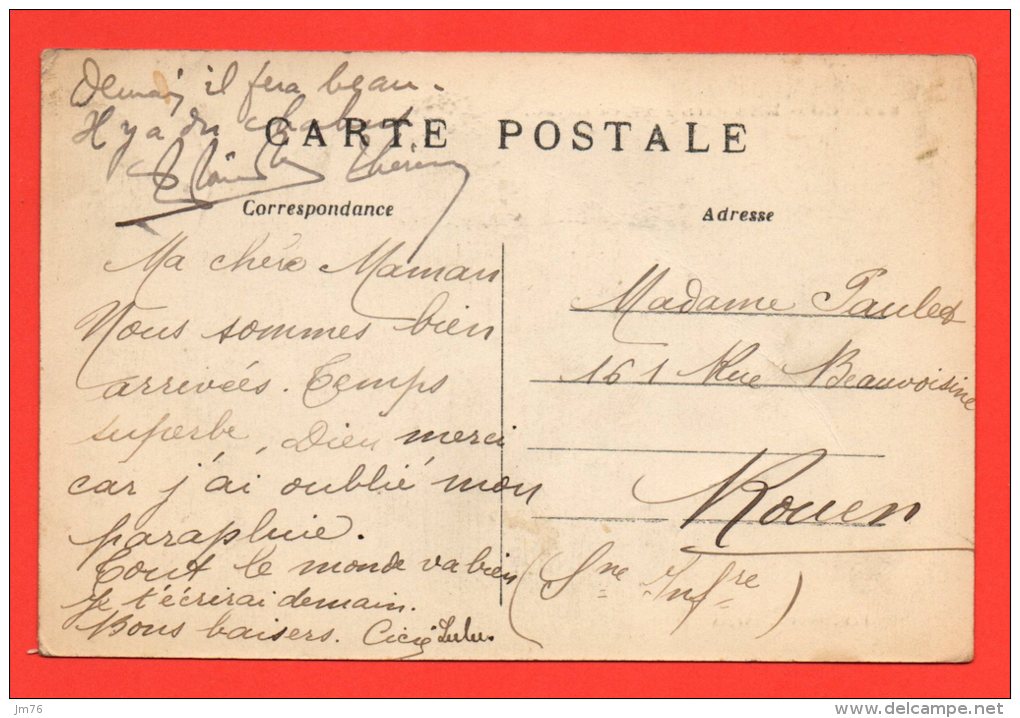 Demain il fera beau.
Il y a du
CARTE POSTALE
Correspondance
Ma chère Maman
Nous sommes bien
arrivées. Temps
superbe, Dieu merci
car j'ai oublié mon
parapluie.
Tout le monde va bien
Je t'écrirai demain.
Bons baisers. Lulu.
Adresse
Madame Paulet
161 Rue Beauvoisine
Rouen
(Sne Infre)
jm76
www.delcampe.net